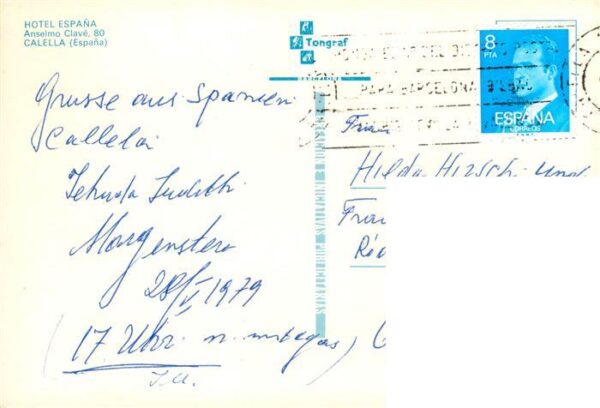 HOTEL ESPAÑA
Anselmo Clavé, 80
CALELLA (España)
Tongraf
BARCELONA
8
PTA
ESPAÑA
CORREOS
PARA BARCELONA BILBAO
Grusse aus Spanien
Callela
Jehuda Judith
Morgenstern
28/V 1979
(17. Uhr n. mittegas)
Hilda Hirsch und